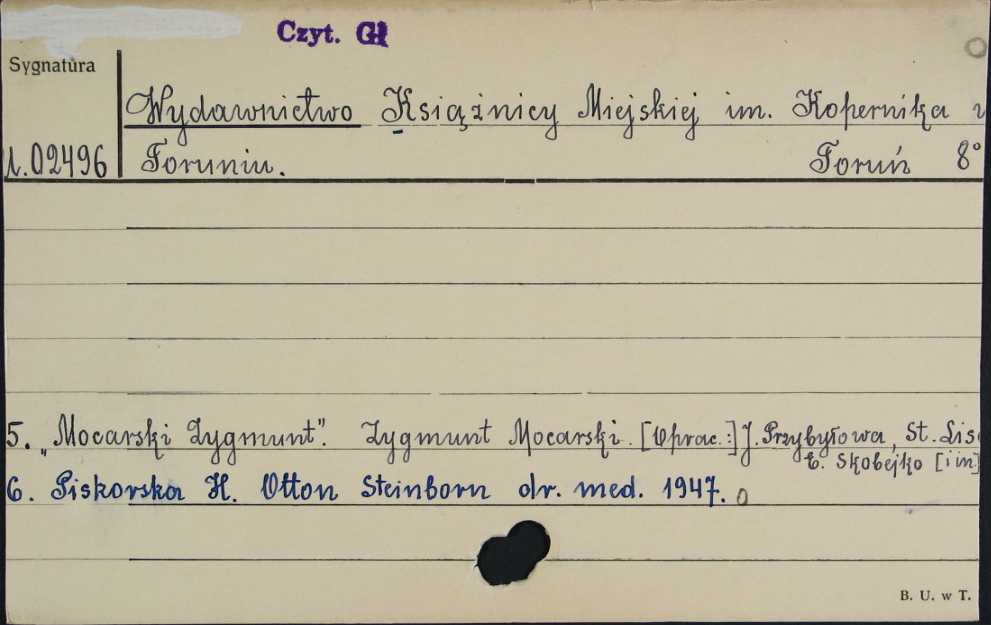 Czyt. Gł
Sygnatura
Wydawnictwo Książnicy Miejskiej im. Kopernika w
02496 Toruniu. Toruń 8°
5. „Mocarski Zygmunt”. Zygmunt Mocarski. [Oprac.:] J. Przybyłowa, St. Lis
E. Skobejko [i in.]
6. Piskorska H. Otton Steinborn dr. med. 1947.
B. U. w T.